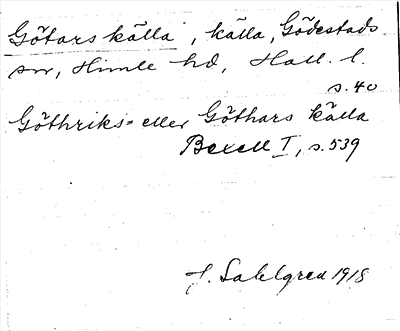 Götars källa, källa, Gödestads
sn, Himle hd, Hall. l.
s. 40
Göthriks- eller Göthars källa
Bexell I, s. 539
J. Sahlgren 1918